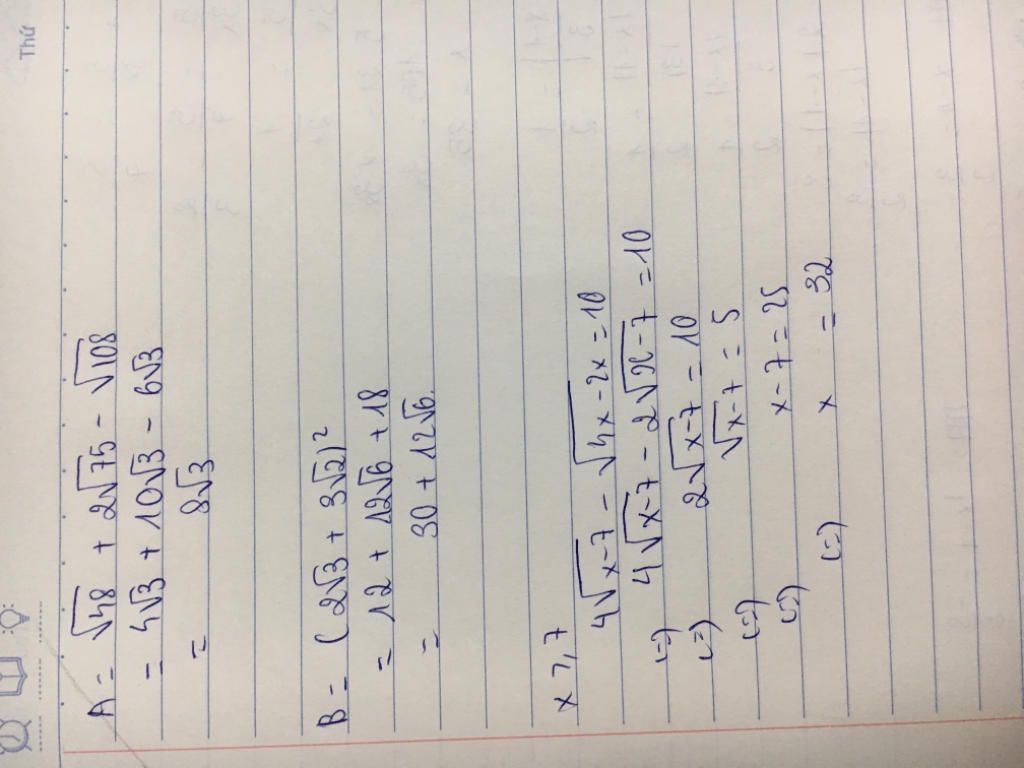 Thứ
A = √48 + 2√75 - √108
= 4√3 + 10√3 - 6√3
= 8√3
B = (2√3 + 3√2)²
= 12 + 12√6 + 18
= 30 + 12√6.
x ≥ 7
4√x-7 - √4x-2x = 10
(=) 4√x-7 - 2√x-7 = 10
(=) 2√x-7 = 10
(=) √x-7 = 5
(=) x-7 = 25
(=) x = 32